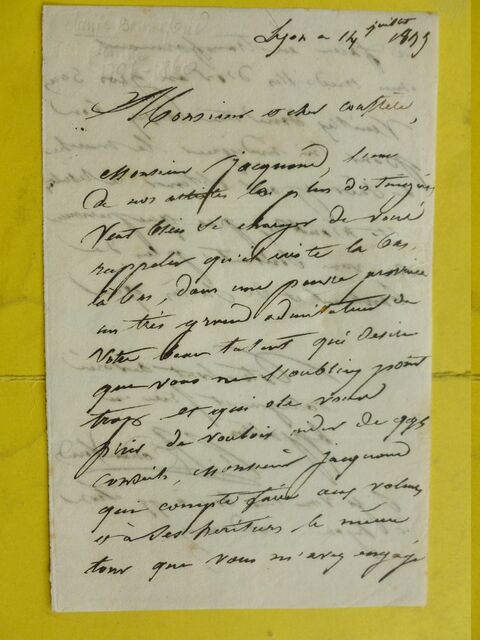 Lyon a 14 juillet
Monsieur & cher confrère,
Monsieur Jacquand, l'un
de nos artistes les plus distingués
veut bien se charger de vous
rappeler qu'il existe là bas
là bas, dans une pauvre province
un très grand admirateur de
votre beau talent qui desire
que vous ne l'oubliez point
trop et qui ose vous
prier de vouloir aider de qqs
conseils, Monsieur Jacquand
qui compte faire aux
et à ses le même
tour que vous m'avez engagé